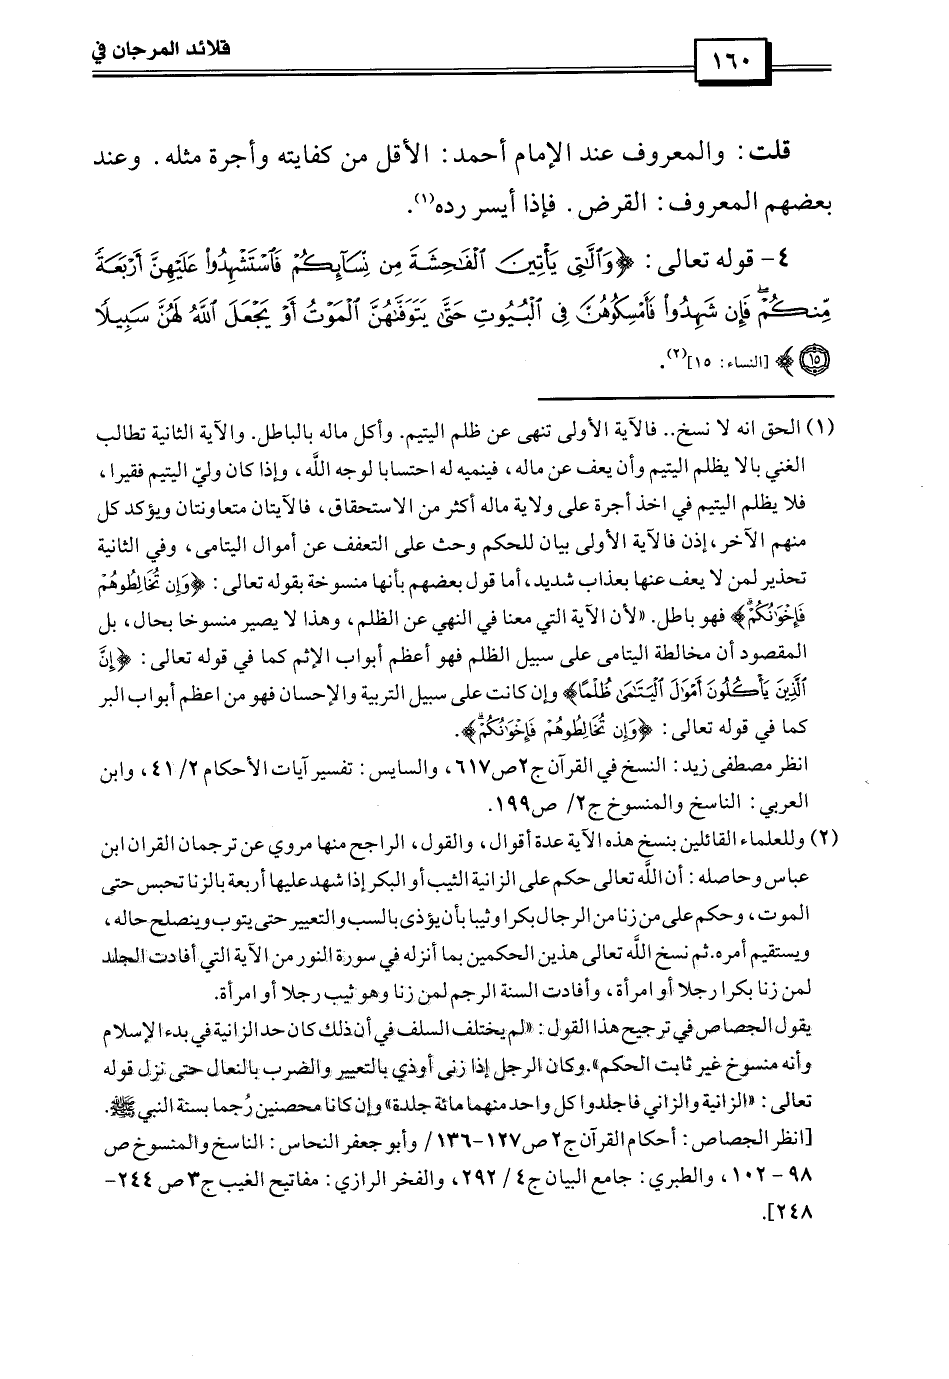 ١٦٠
قلائد المرجان في
قلت: والمعروف عند الإمام أحمد: الأقل من كفايته وأجرة مثله. وعند
بعضهم المعروف: القرض. فإذا أيسر رده(١).
٤- قوله تعالى: ﴿وَٱلَّٰتِى يَأْتِينَ ٱلْفَٰحِشَةَ مِن نِّسَآئِكُمْ فَٱسْتَشْهِدُوا۟ عَلَيْهِنَّ أَرْبَعَةً
مِّنكُمْ ۖ فَإِن شَهِدُوا۟ فَأَمْسِكُوهُنَّ فِى ٱلْبُيُوتِ حَتَّىٰ يَتَوَفَّىٰهُنَّ ٱلْمَوْتُ أَوْ يَجْعَلَ ٱللَّهُ لَهُنَّ سَبِيلًا
١٥﴾ [النساء: ١٥](٢).
(١) الحق انه لا نسخ.. فالآية الأولى تنهى عن ظلم اليتيم. وأكل ماله بالباطل. والآية الثانية تطالب
الغني بالا يظلم اليتيم وأن يعف عن ماله، فينميه له احتسابا لوجه اللَّه، وإذا كان وليّ اليتيم فقيرا،
فلا يظلم اليتيم في اخذ أجرة على ولاية ماله أكثر من الاستحقاق، فالآيتان متعاونتان ويؤكد كل
منهم الآخر، إذن فالآية الأولى بيان للحكم وحث على التعفف عن أموال اليتامى، وفي الثانية
تحذير لمن لا يعف عنها بعذاب شديد، أما قول بعضهم بأنها منسوخة بقوله تعالى: ﴿وَإِن تُخَالِطُوهُمْ
فَإِخْوَٰنُكُمْ ۚ﴾ فهو باطل. «لأن الآية التي معنا في النهي عن الظلم، وهذا لا يصير منسوخا بحال، بل
المقصود أن مخالطة اليتامى على سبيل الظلم فهو أعظم أبواب الإثم كما في قوله تعالى: ﴿إِنَّ
ٱلَّذِينَ يَأْكُلُونَ أَمْوَٰلَ ٱلْيَتَٰمَىٰ ظُلْمًا﴾ وإن كانت على سبيل التربية والإحسان فهو من اعظم أبواب البر
كما في قوله تعالى: ﴿وَإِن تُخَالِطُوهُمْ فَإِخْوَٰنُكُمْ ۚ﴾.
انظر مصطفى زيد: النسخ في القرآن ج٢ص٦١٧، والسايس: تفسير آيات الأحكام ٢/ ٤١، وابن
العربي: الناسخ والمنسوخ ج٢/ ص١٩٩.
(٢) وللعلماء القائلين بنسخ هذه الآية عدة أقوال، والقول، الراجح منها مروي عن ترجمان القران ابن
عباس وحاصله: أن اللَّه تعالى حكم على الزانية الثيب أو البكر إذا شهد عليها أربعة بالزنا تحبس حتى
الموت، وحكم على من زنا من الرجال بكرا وثيبا بأن يؤذى بالسب والتعيير حتى يتوب وينصلح حاله،
ويستقيم أمره.ثم نسخ اللَّه تعالى هذين الحكمين بما أنزله في سورة النور من الآية التي أفادت الجلد
لمن زنا بكرا رجلا أو امرأة، وأفادت السنة الرجم لمن زنا وهو ثيب رجلا أو امرأة.
يقول الجصاص في ترجيح هذا القول: «لم يختلف السلف في أن ذلك كان حد الزانية في بدء الإسلام
وأنه منسوخ غير ثابت الحكم».وكان الرجل إذا زنى أوذي بالتعيير والضرب بالنعال حتى نزل قوله
تعالى: «الزانية والزاني فاجلدوا كل واحد منهما مائة جلدة» وإن كانا محصنين رُجما بسنة النبي ﷺ.
[انظر الجصاص: أحكام القرآن ج٢ ص١٢٧-١٣٦/ وأبو جعفر النحاس: الناسخ والمنسوخ ص
٩٨-١٠٢، والطبري: جامع البيان ج٤/ ٢٩٢، والفخر الرازي: مفاتيح الغيب ج٣ ص ٢٤٤-
٢٤٨].